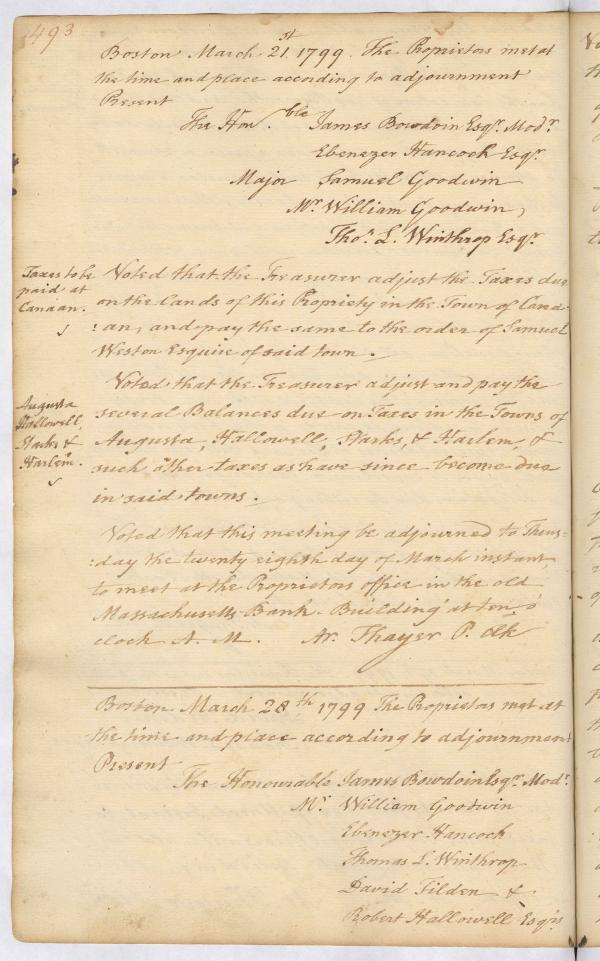 493
Boston March 21.st 1799. The Proprietors met at
the time and place according to adjournment
Present
The Hon.ble James Bowdoin Esqr. Modr.
Ebenezer Hancock Esqr.
Major Samuel Goodwin
Mr. William Goodwin,
Thos. L. Winthrop Esqr.
Taxes to be
paid at
Canaan.
Voted that the Treasurer adjust the Taxes due
on the lands of this Propriety in the Town of Cana-
:an, and pay the same to the order of Samuel
Weston Esquire of said town.
Augusta
Hallowell,
Starks &
Harlem.
Voted that the Treasurer adjust and pay the
several Balances due on Taxes in the Towns of
Augusta, Hallowell, Starks, & Harlem, &
such other taxes as have since become due
in said towns.
Voted that this meeting be adjourned to Thurs=
:day the twenty eighth day of March instant,
to meet at the Proprietors office in the old
Massachusetts Bank Building at ten o'
clock A. M. Ar. Thayer P. Clk
Boston March 28th 1799 The Proprietors met at
the time and place according to adjournment
Present
The Honourable James Bowdoin Esqr. Modr.
Mr. William Goodwin
Ebenezer Hancock
Thomas L. Winthrop
David Tilden &
Robert Hallowell Esqrs